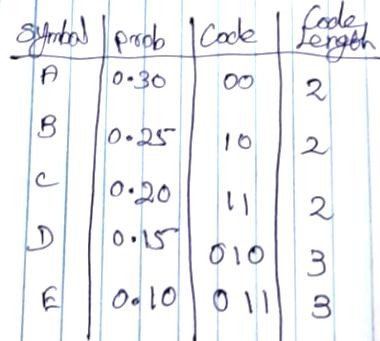 Symbol | Prob | Code | Code Length
A | 0.30 | 00 | 2
B | 0.25 | 10 | 2
C | 0.20 | 11 | 2
D | 0.15 | 010 | 3
E | 0.10 | 011 | 3